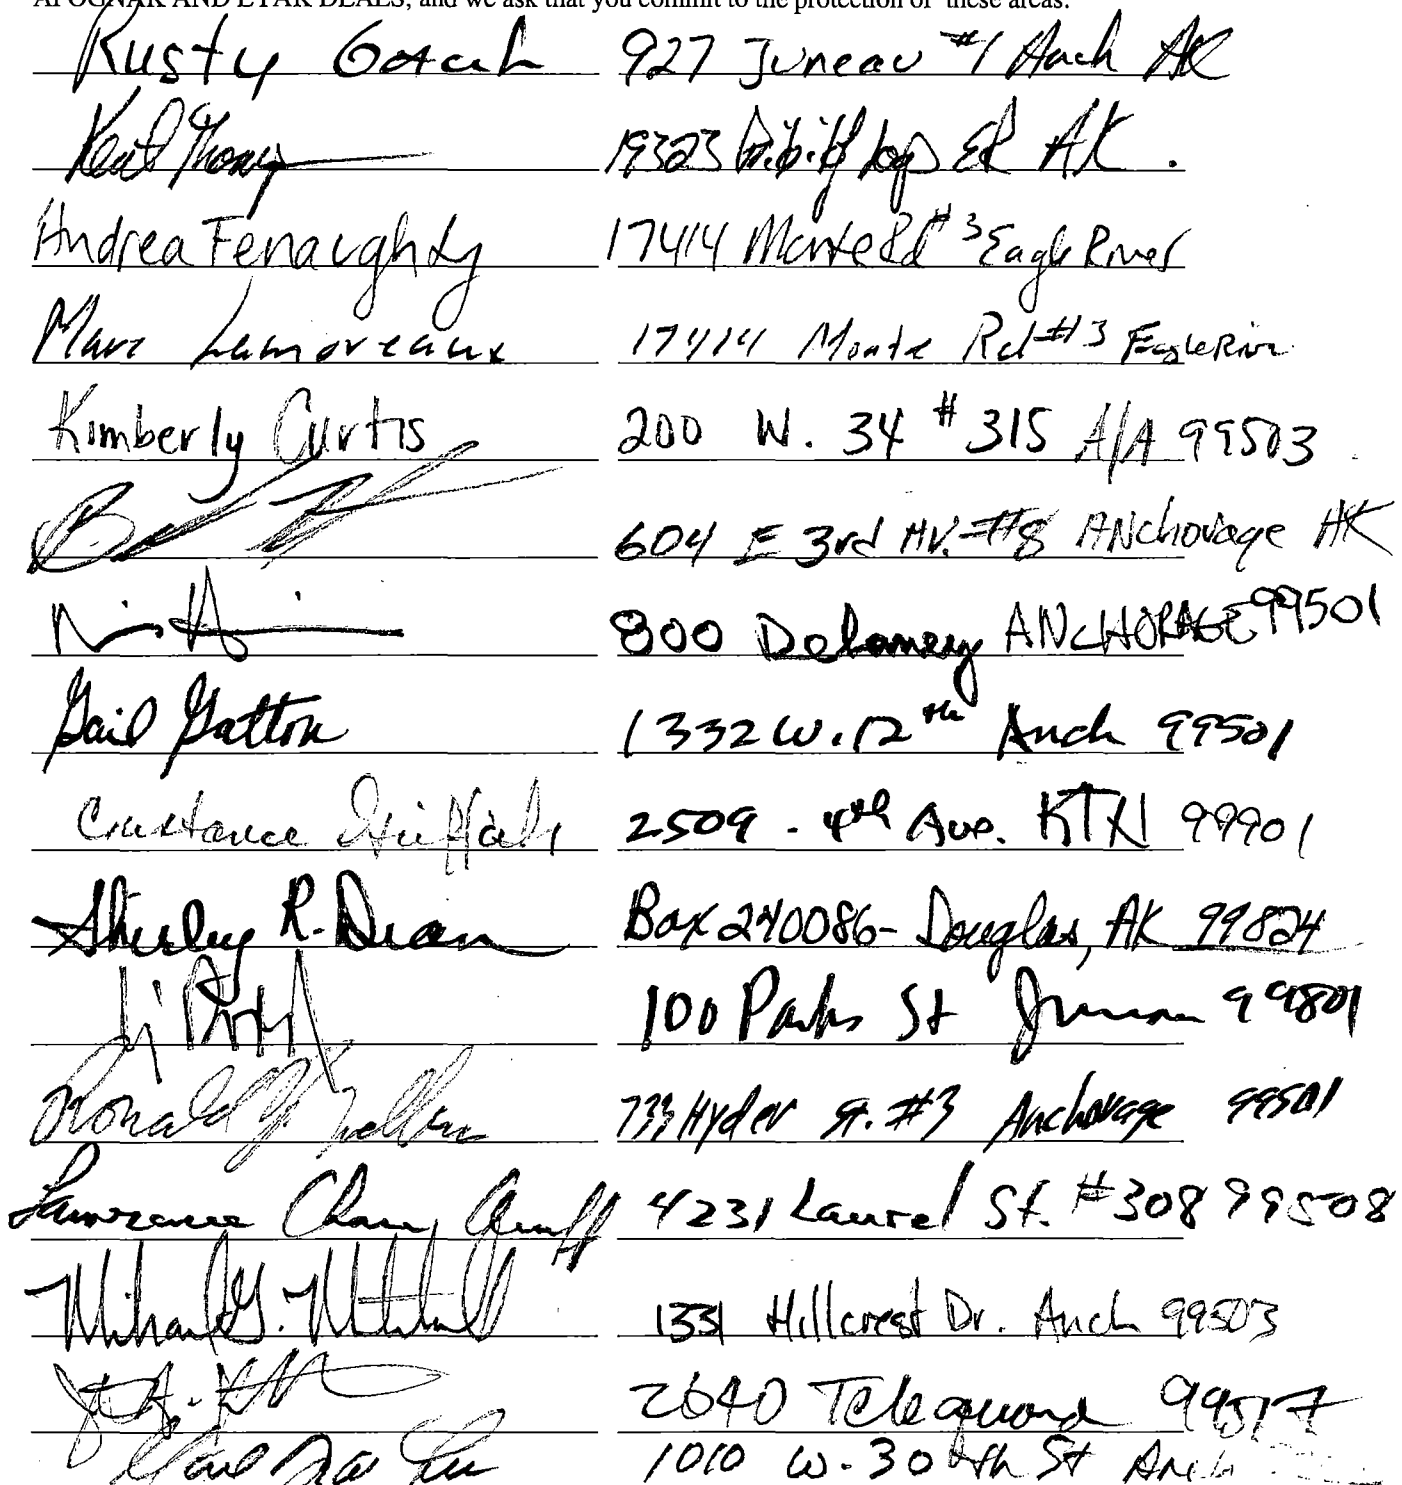 AFOGNAK AND EYAK DEALS, and we ask that you commit to the protection of these areas.
Rusty 927 Juneau #1 Anch AK
19323 loop ER AK.
Andrea Fenaughty 17414 Monte Rd #3 Eagle River
Marc Lamoreaux 17414 Monte Rd #3 Eagle River
Kimberly Curtis 200 W. 34 #315 A/A 99503
604 E 3rd AV. #8 ANchorage AK
800 Delaney ANCHORAGE 99501
Gail Gatton 1332 W. 12th Anch 99501
Constance 2509 - 4th Ave. KTN 99901
Shirley R. Dean Box 240086- Douglas, AK 99824
100 Parks St Juneau 99801
Ronald 733 Hyder St. #3 Anchorage 99501
Lawrence 4231 Laurel St. #308 99508
Michael G. Mitchell 1331 Hillcrest Dr. Anch 99503
2640 99517
1010 W. 30th St Anch